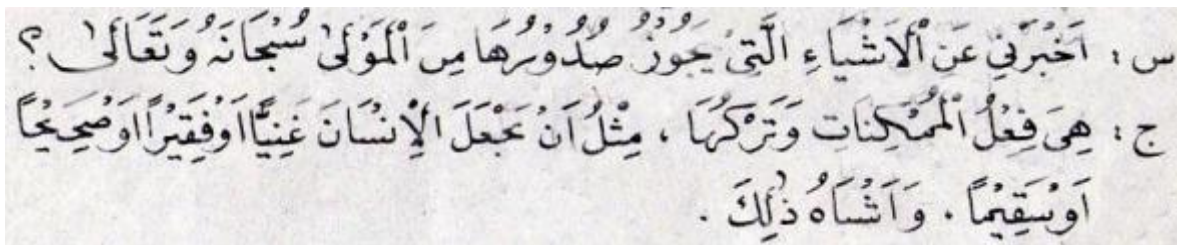 س : اَخْبِرْنِي عَنِ ٱلْاَشْيَاءِ الَّتِيْ يَجُوْزُ صُدُوْرُهَا مِنَ ٱلْمَوْلٰى سُبْحَانَهُ وَتَعَالٰى ؟
ج : هِيَ فِعْلُ ٱلْمُمْكِنَاتِ وَتَرْكُهَا ، مِثْلُ اَنْ يَجْعَلَ الْاِنْسَانَ غَنِيًّا اَوْفَقِيْرًا اَوْصَحِيْحًا
اَوْسَقِيْمًا . وَاَشْبَاهُ ذٰلِكَ .